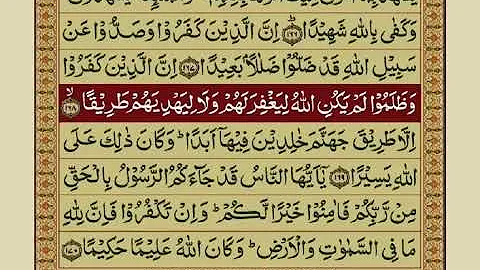 وَكَفٰى بِاللّٰهِ شَهِيْدًا ؕ‏﴿۱۶۶﴾‏ اِنَّ الَّذِيْنَ كَفَرُوْا وَصَدُّوْا عَنْ
سَبِيْلِ اللّٰهِ قَدْ ضَلُّوْا ضَلٰلًاۢ بَعِيْدًا ﴿۱۶۷﴾ اِنَّ الَّذِيْنَ كَفَرُوْا
وَظَلَمُوْا لَمْ يَكُنِ اللّٰهُ لِيَغْفِرَ لَهُمْ وَلَا لِيَهْدِيَهُمْ طَرِيْقًا ۙ﴿۱۶۸﴾
اِلَّا طَرِيْقَ جَهَنَّمَ خٰلِدِيْنَ فِيْهَاۤ اَبَدًا ؕ وَكَانَ ذٰلِكَ عَلَى
اللّٰهِ يَسِيْرًا ﴿۱۶۹﴾ يٰۤاَيُّهَا النَّاسُ قَدْ جَآءَكُمُ الرَّسُوْلُ بِالْحَقِّ
مِنْ رَّبِّكُمْ فَاٰمِنُوْا خَيْرًا لَّكُمْ ؕ وَاِنْ تَكْفُرُوْا فَاِنَّ لِلّٰهِ
مَا فِى السَّمٰوٰتِ وَالْاَرْضِ ؕ وَكَانَ اللّٰهُ عَلِيْمًا حَكِيْمًا ﴿۱۷۰﴾